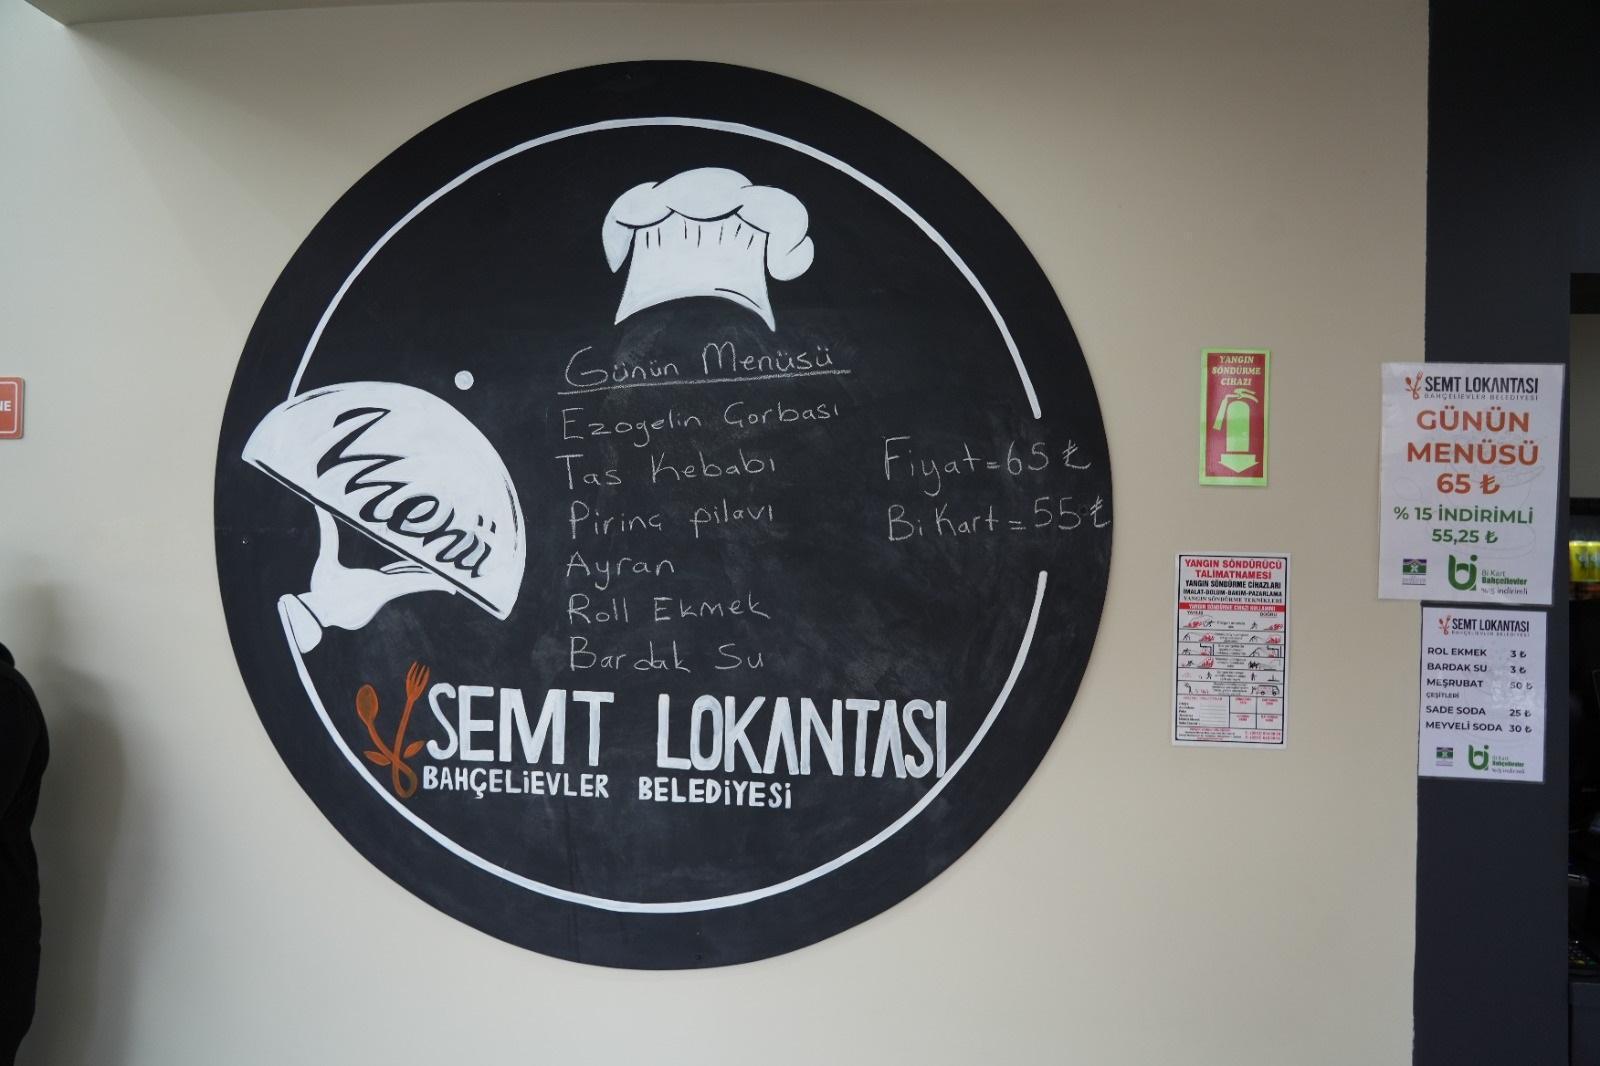 Menü
Günün Menüsü
Ezogelin Çorbası
Tas Kebabı
Pirinç pilavı
Ayran
Roll Ekmek
Bardak Su
Fiyat=65 ₺
Bi Kart=55 ₺
SEMT LOKANTASI
BAHÇELİEVLER BELEDİYESİ
NE
YANGIN
SÖNDÜRME
CİHAZI
YANGIN SÖNDÜRÜCÜ
TALİMATNAMESİ
YANGIN SÖNDÜRME CİHAZLARI
İMALAT-DOLUM-BAKIM-PAZARLAMA
YANGIN SÖNDÜRME TEKNİKLERİ
YANGIN SÖNDÜRME CİHAZI KULLANIMI
YANLIŞ DOĞRU
SEMT LOKANTASI
BAHÇELİEVLER BELEDİYESİ
GÜNÜN
MENÜSÜ
65 ₺
% 15 İNDİRİMLİ
55,25 ₺
Bi Kart
Bahçelievler
%15 indirimli
SEMT LOKANTASI
BAHÇELİEVLER BELEDİYESİ
ROL EKMEK 3 ₺
BARDAK SU 3 ₺
MEŞRUBAT 50 ₺
ÇEŞİTLERİ
SADE SODA 25 ₺
MEYVELİ SODA 30 ₺
Bi Kart
Bahçelievler
%15 indirimli